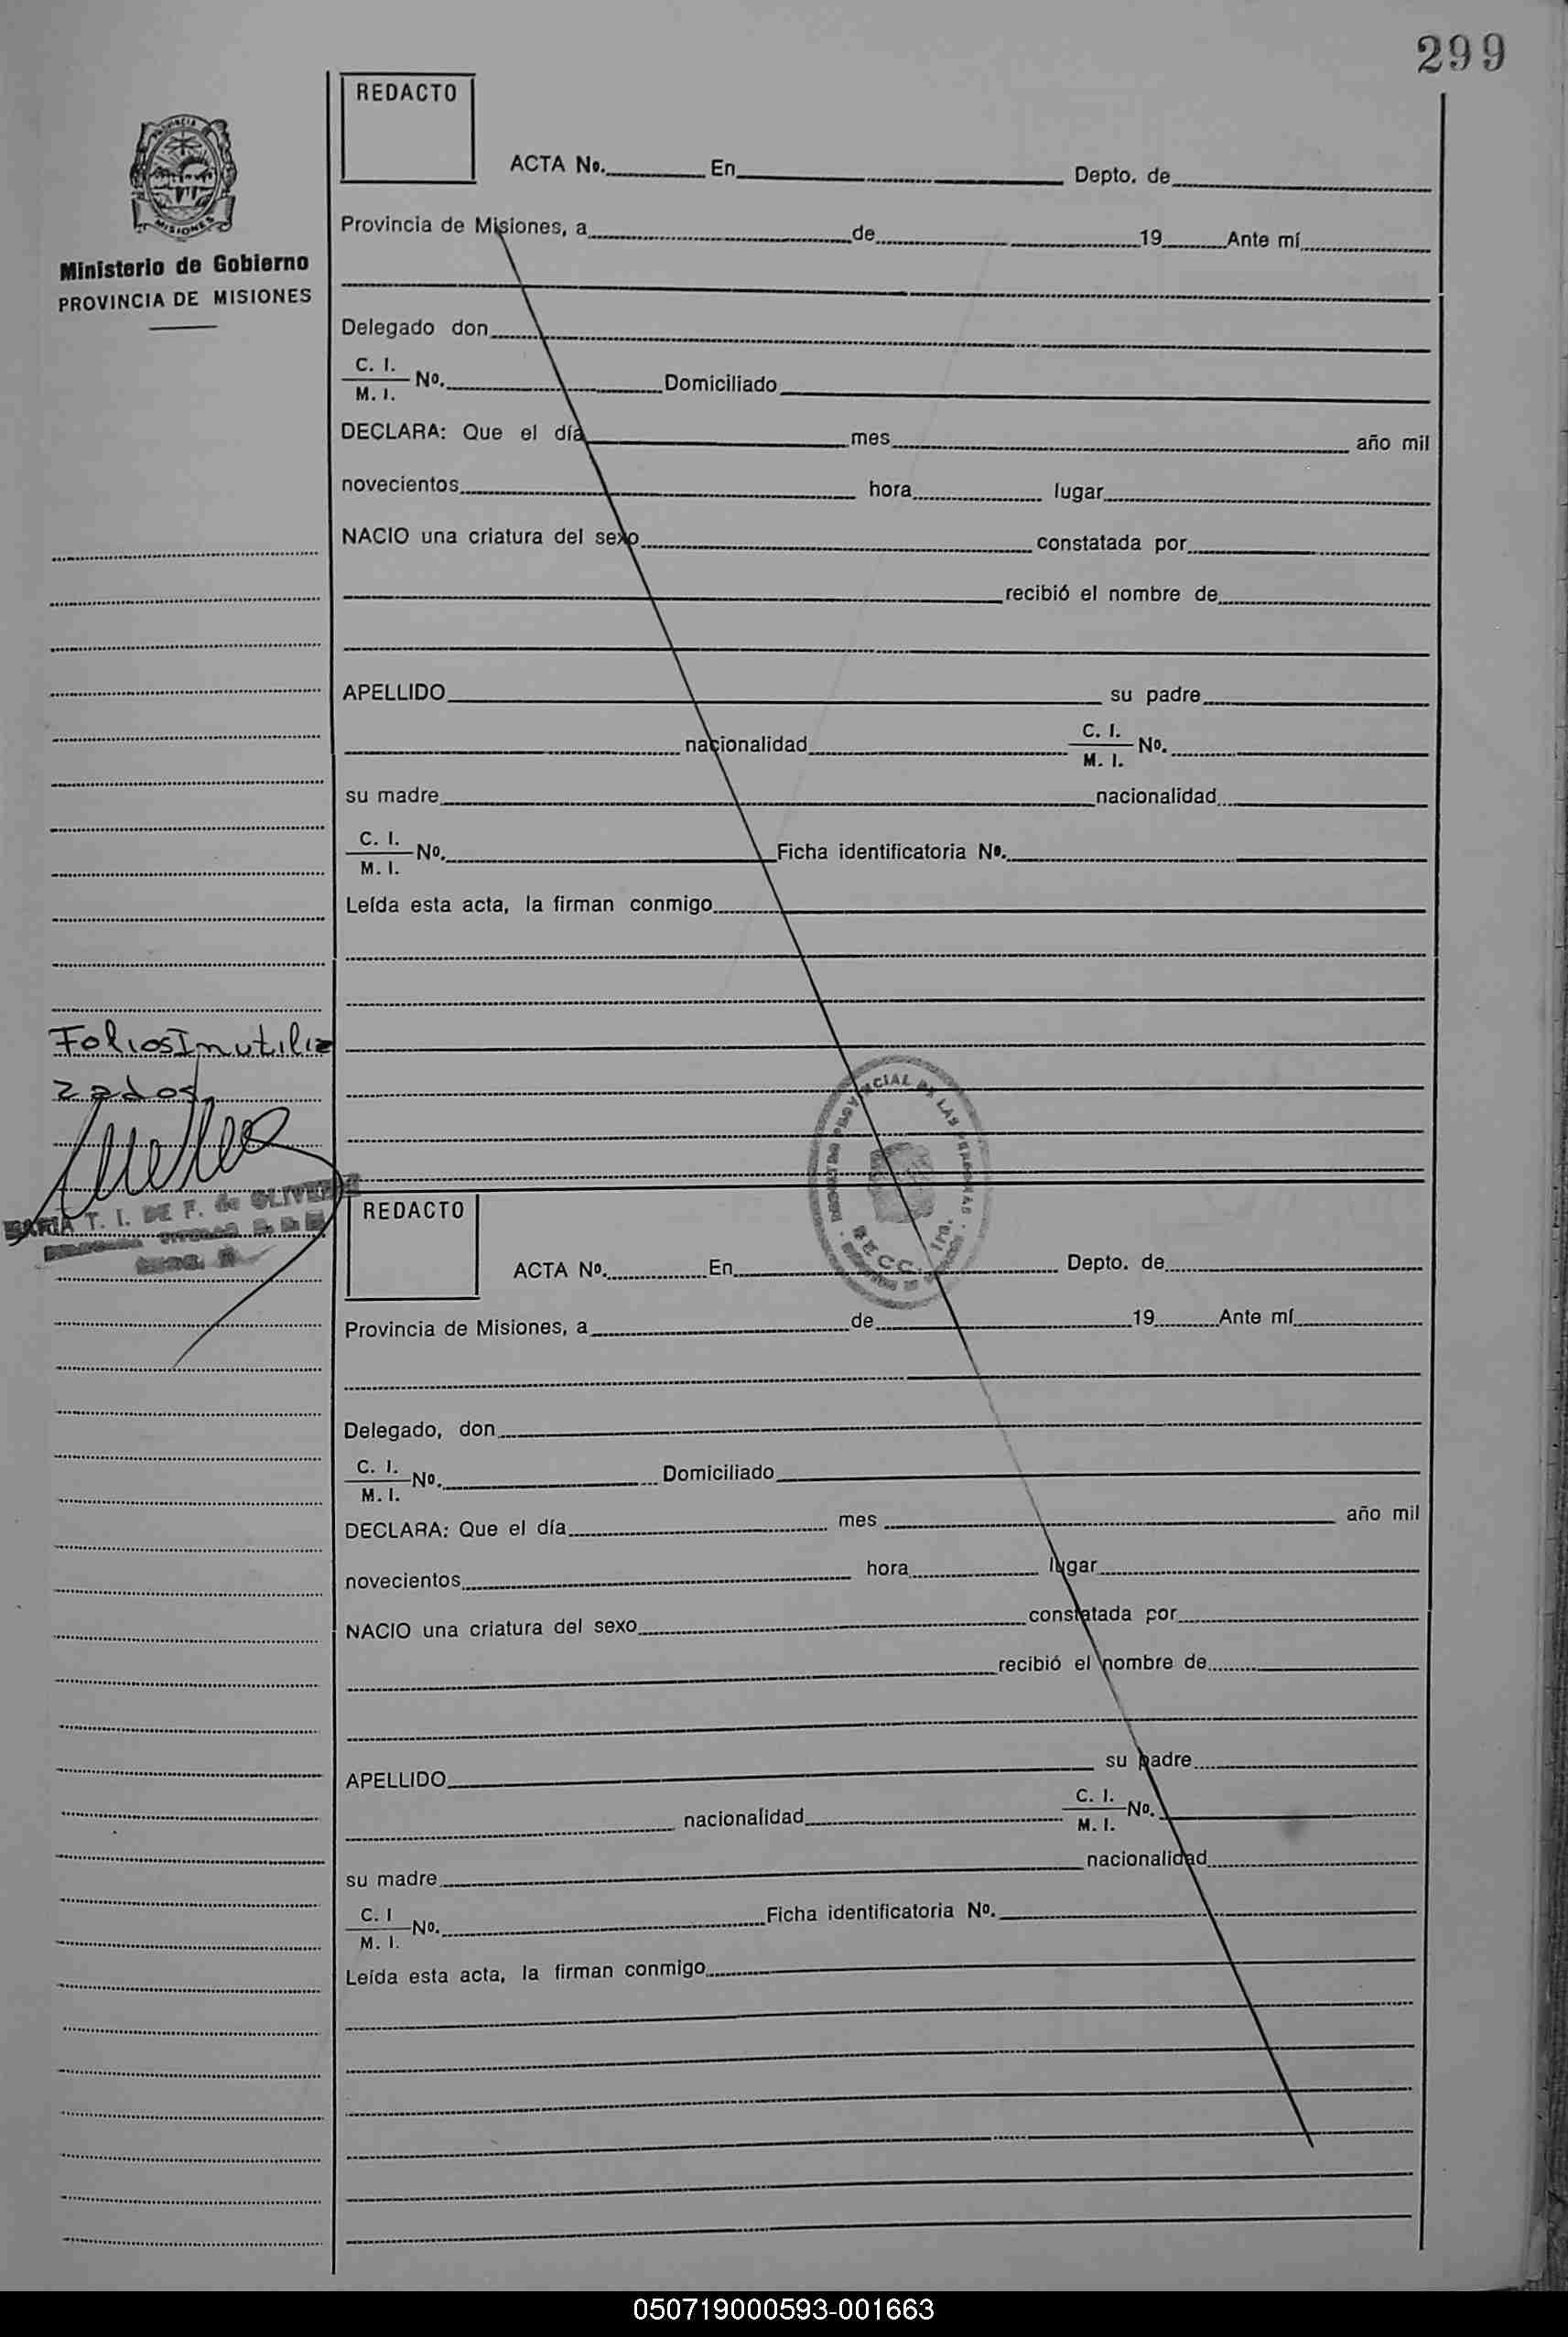 299
REDACTO
ACTA No. En Depto. de
PROVINCIA
MISIONES
Provincia de Misiones, a de 19 Ante mí
Ministerio de Gobierno
PROVINCIA DE MISIONES
Delegado don
C. I.
M. I. No. Domiciliado
DECLARA: Que el día mes año mil
novecientos hora lugar
NACIO una criatura del sexo constatada por
recibió el nombre de
APELLIDO su padre
nacionalidad C. I.
M. I. No.
su madre nacionalidad
C. I.
M. I. No. Ficha identificatoria No.
Leída esta acta, la firman conmigo
Folios Inutiliz
zados
MARIA T. I. DE F. de OLIVERA
PROVINCIAL DE LAS PERSONAS
REDACTO
ACTA No. En Depto. de
Provincia de Misiones, a de 19 Ante mí
Delegado, don
C. I.
M. I. No. Domiciliado
DECLARA: Que el día mes año mil
novecientos hora lugar
NACIO una criatura del sexo constatada por
recibió el nombre de
APELLIDO su padre
nacionalidad C. I.
M. I. No.
su madre nacionalidad
C. I
M. I. No. Ficha identificatoria No.
Leída esta acta, la firman conmigo
050719000593-001663